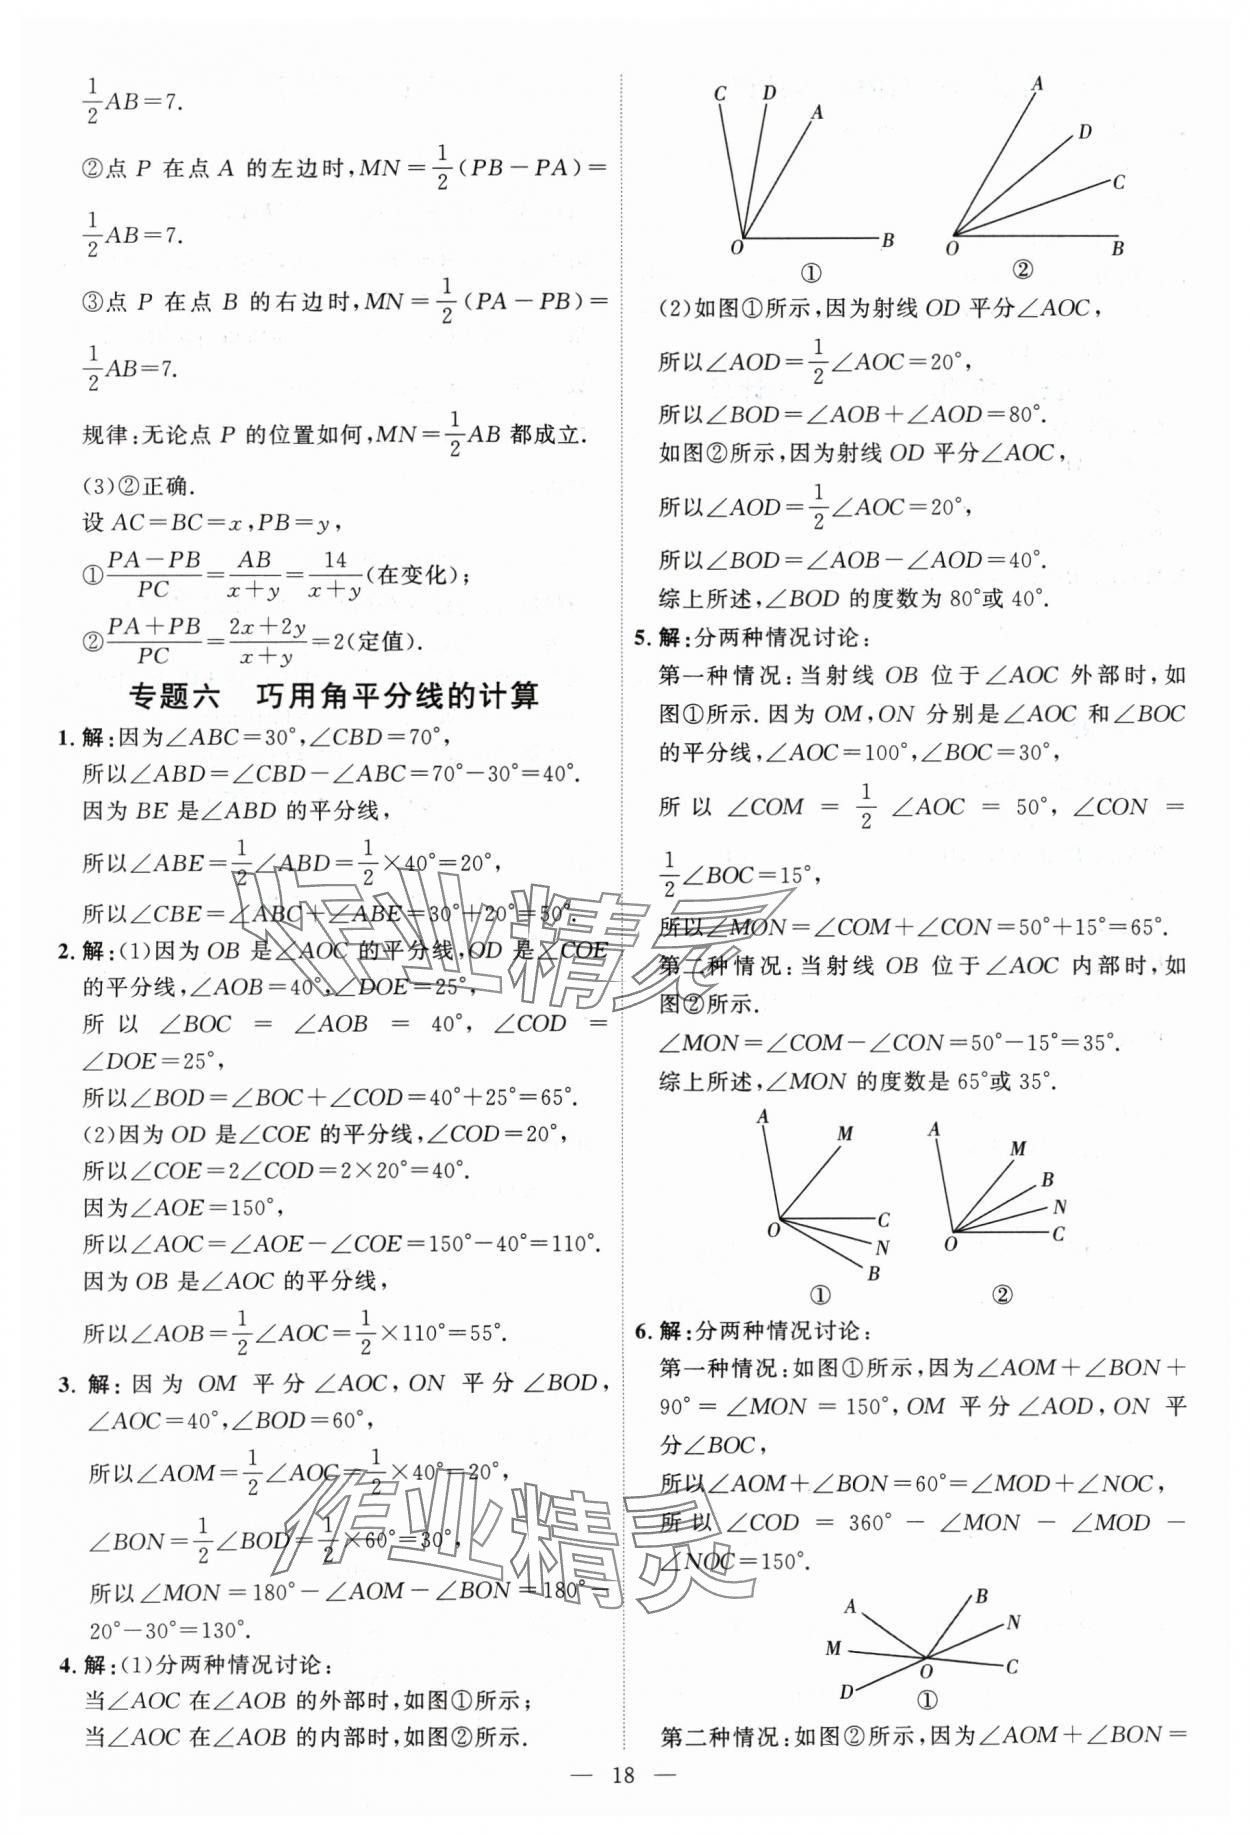 1/2 AB=7.
②点 P 在点 A 的左边时,MN=1/2(PB-PA)=
1/2 AB=7.
③点 P 在点 B 的右边时,MN=1/2(PA-PB)=
1/2 AB=7.
规律:无论点 P 的位置如何,MN=1/2 AB 都成立.
(3)②正确.
设 AC=BC=x,PB=y,
①(PA-PB)/PC=AB/(x+y)=14/(x+y)(在变化);
②(PA+PB)/PC=(2x+2y)/(x+y)=2(定值).
专题六 巧用角平分线的计算
1. 解:因为∠ABC=30°,∠CBD=70°,
所以∠ABD=∠CBD-∠ABC=70°-30°=40°.
因为 BE 是∠ABD 的平分线,
所以∠ABE=1/2∠ABD=1/2×40°=20°,
所以∠CBE=∠ABC+∠ABE=30°+20°=50°.
2. 解:(1)因为 OB 是∠AOC 的平分线,OD 是∠COE
的平分线,∠AOB=40°,∠DOE=25°,
所以 ∠BOC = ∠AOB = 40°, ∠COD =
∠DOE=25°,
所以∠BOD=∠BOC+∠COD=40°+25°=65°.
(2)因为 OD 是∠COE 的平分线,∠COD=20°,
所以∠COE=2∠COD=2×20°=40°.
因为∠AOE=150°,
所以∠AOC=∠AOE-∠COE=150°-40°=110°.
因为 OB 是∠AOC 的平分线,
所以∠AOB=1/2∠AOC=1/2×110°=55°.
3. 解:因为 OM 平分∠AOC,ON 平分∠BOD,
∠AOC=40°,∠BOD=60°,
所以∠AOM=1/2∠AOC=1/2×40°=20°,
∠BON=1/2∠BOD=1/2×60°=30°,
所以∠MON=180°-∠AOM-∠BON=180°-
20°-30°=130°.
4. 解:(1)分两种情况讨论:
当∠AOC 在∠AOB 的外部时,如图①所示;
当∠AOC 在∠AOB 的内部时,如图②所示.
C D A
O B
①
A D C
O B
②
(2)如图①所示,因为射线 OD 平分∠AOC,
所以∠AOD=1/2∠AOC=20°,
所以∠BOD=∠AOB+∠AOD=80°.
如图②所示,因为射线 OD 平分∠AOC,
所以∠AOD=1/2∠AOC=20°,
所以∠BOD=∠AOB-∠AOD=40°.
综上所述,∠BOD 的度数为 80°或 40°.
5. 解:分两种情况讨论:
第一种情况:当射线 OB 位于∠AOC 外部时,如
图①所示.因为 OM,ON 分别是∠AOC 和∠BOC
的平分线,∠AOC=100°,∠BOC=30°,
所以 ∠COM = 1/2 ∠AOC = 50°,∠CON =
1/2∠BOC=15°,
所以∠MON=∠COM+∠CON=50°+15°=65°.
第二种情况:当射线 OB 位于∠AOC 内部时,如
图②所示.
∠MON=∠COM-∠CON=50°-15°=35°.
综上所述,∠MON 的度数是 65°或 35°.
A M
O C
N
B
①
A M
B
N
O C
②
6. 解:分两种情况讨论:
第一种情况:如图①所示,因为∠AOM+∠BON+
90°=∠MON=150°,OM 平分∠AOD,ON 平
分∠BOC,
所以∠AOM+∠BON=60°=∠MOD+∠NOC,
所以 ∠COD = 360° - ∠MON - ∠MOD -
∠NOC=150°.
A B
N
M
O C
D
①
第二种情况:如图②所示,因为∠AOM+∠BON=
— 18 —
作业精灵
作业精灵